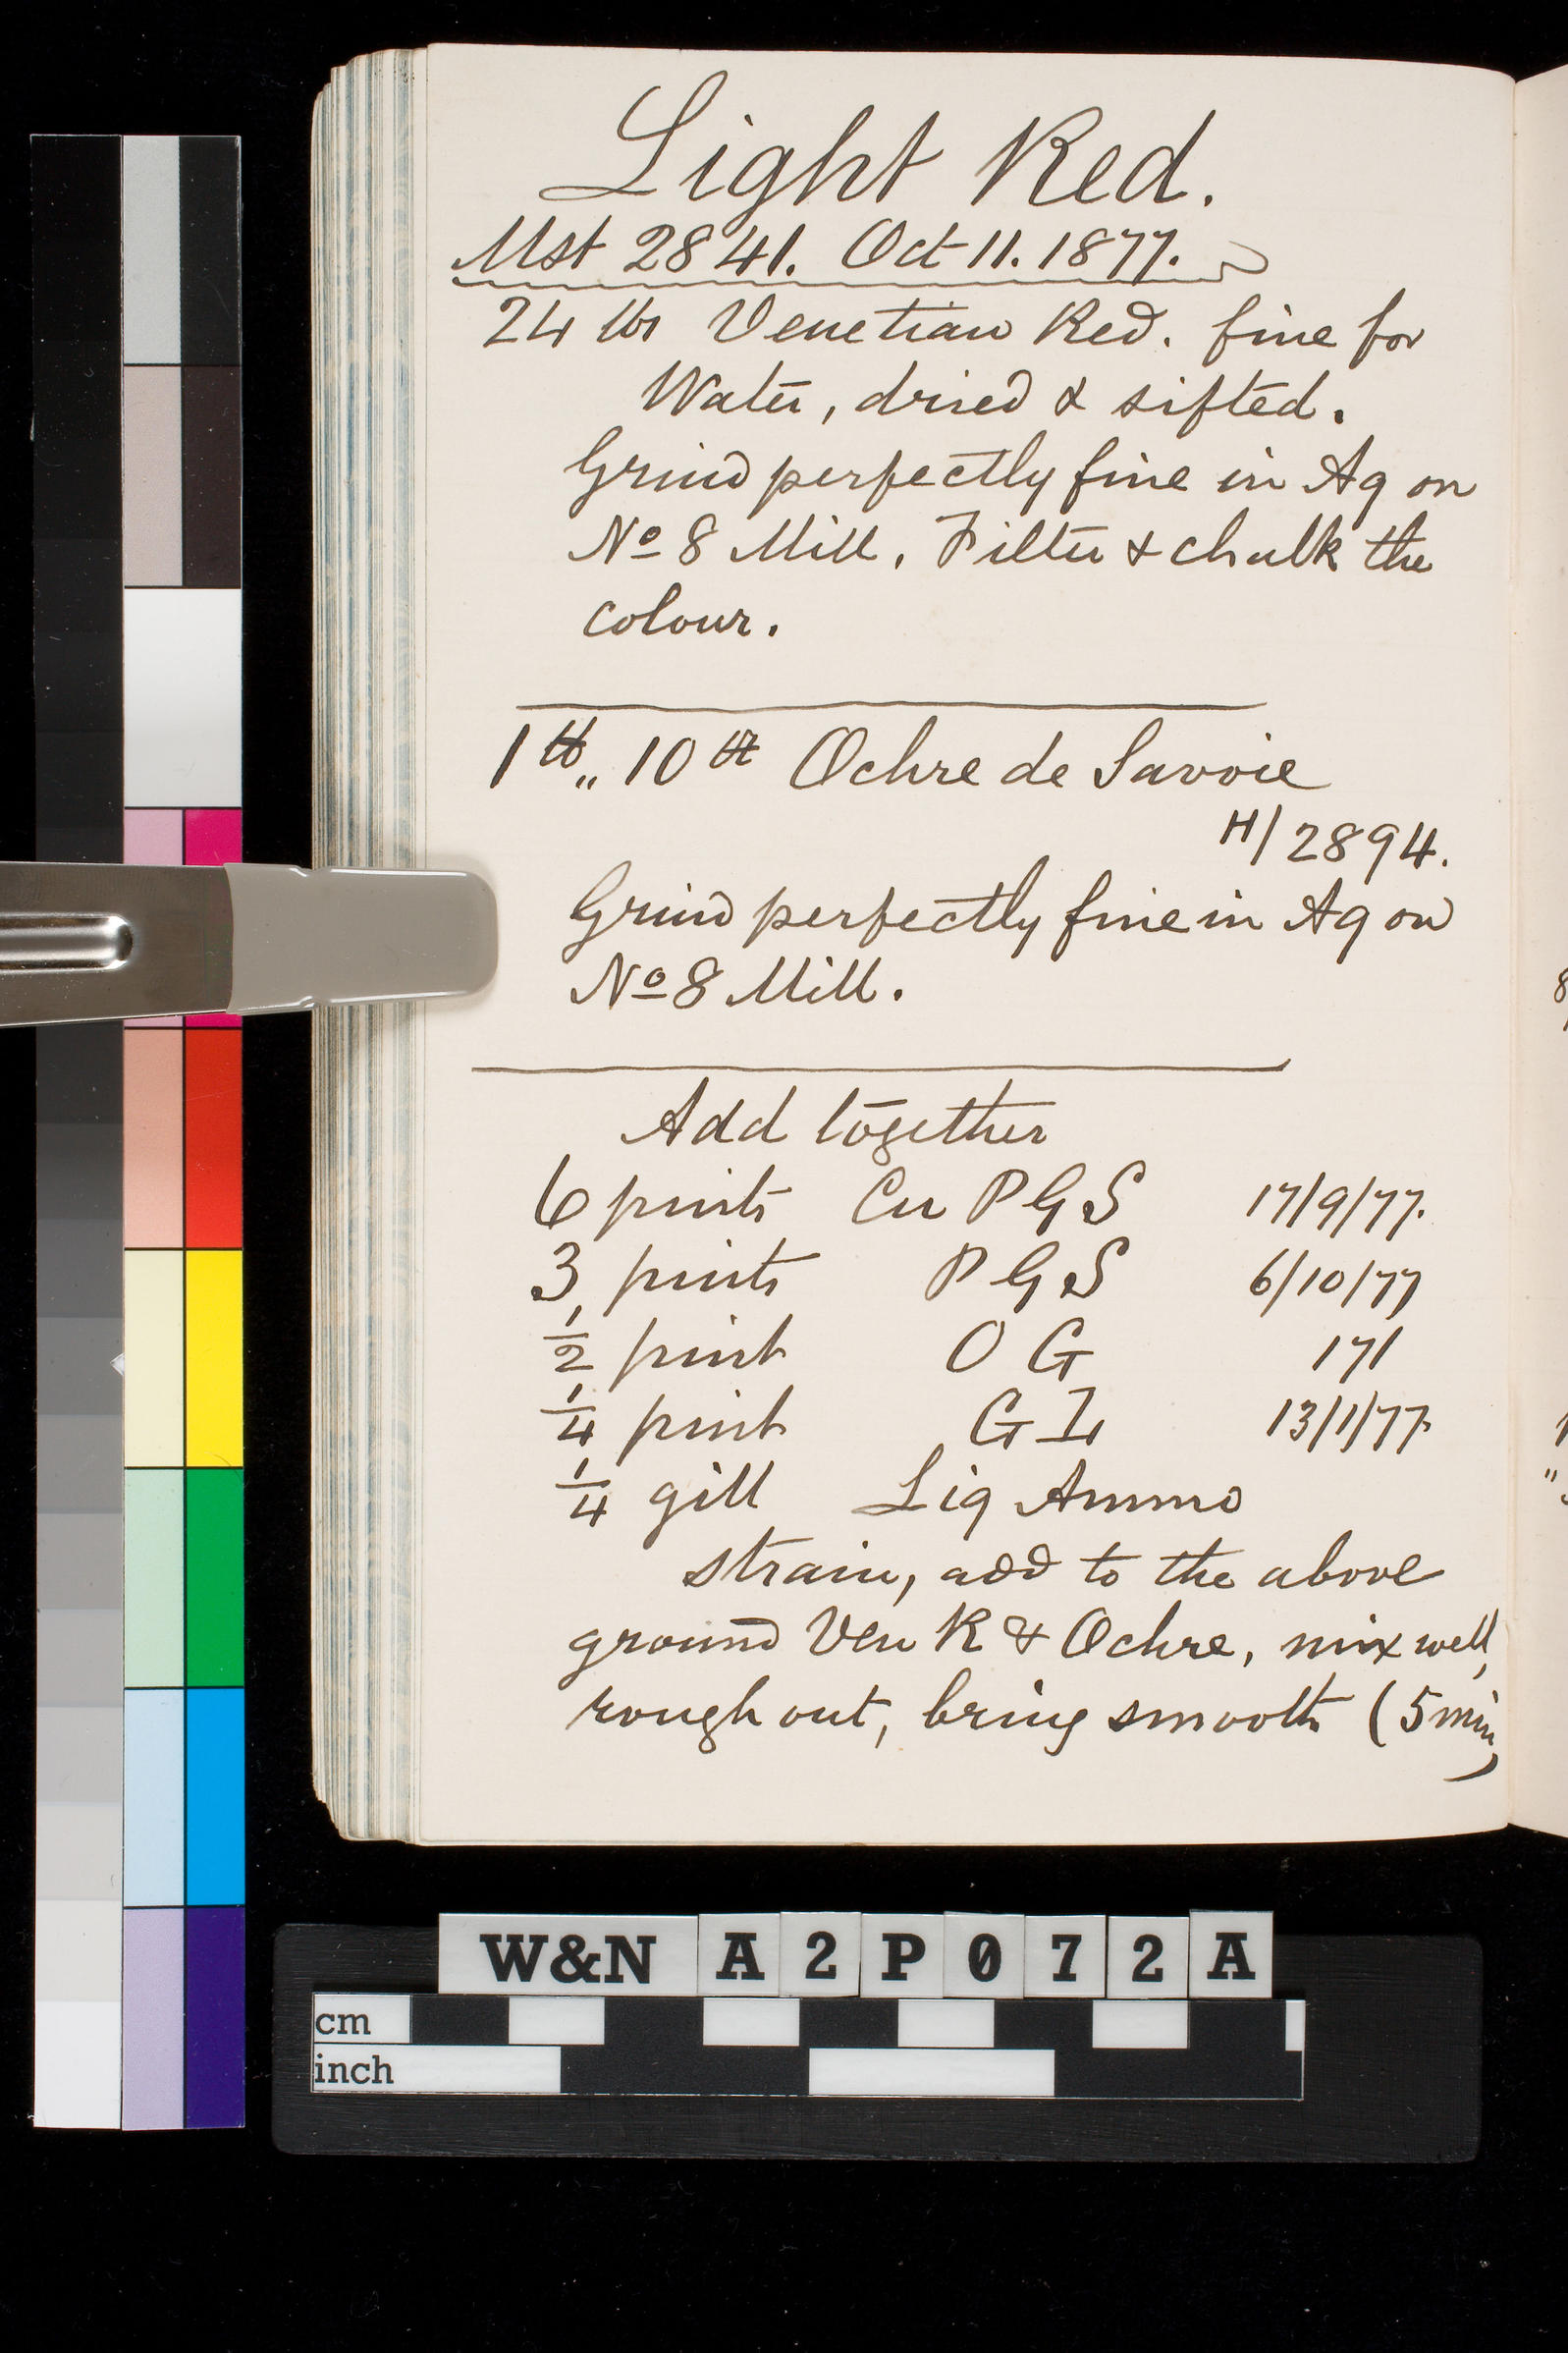 Light Red.
Mst 2841. Oct 11. 1877.
24 lbs Venetian Red. fine for
Water, dried & sifted.
Grind perfectly fine in Aq on
No 8 Mill. Filter & chalk the
colour.
1 lb „ 10 oz Ochre de Savoie
H/2894.
Grind perfectly fine in Aq on
No 8 Mill.
Add together
6 pints Cu P G S 17/9/77.
3 pints P G S 6/10/77
1/2 pint O G 171
1/4 pint G I 13/1/77.
1/4 gill Liq Ammo
strain, add to the above
ground Ven R & Ochre, mix well,
rough out, bring smooth (5 min)
W&N A2P072A
cm
inch